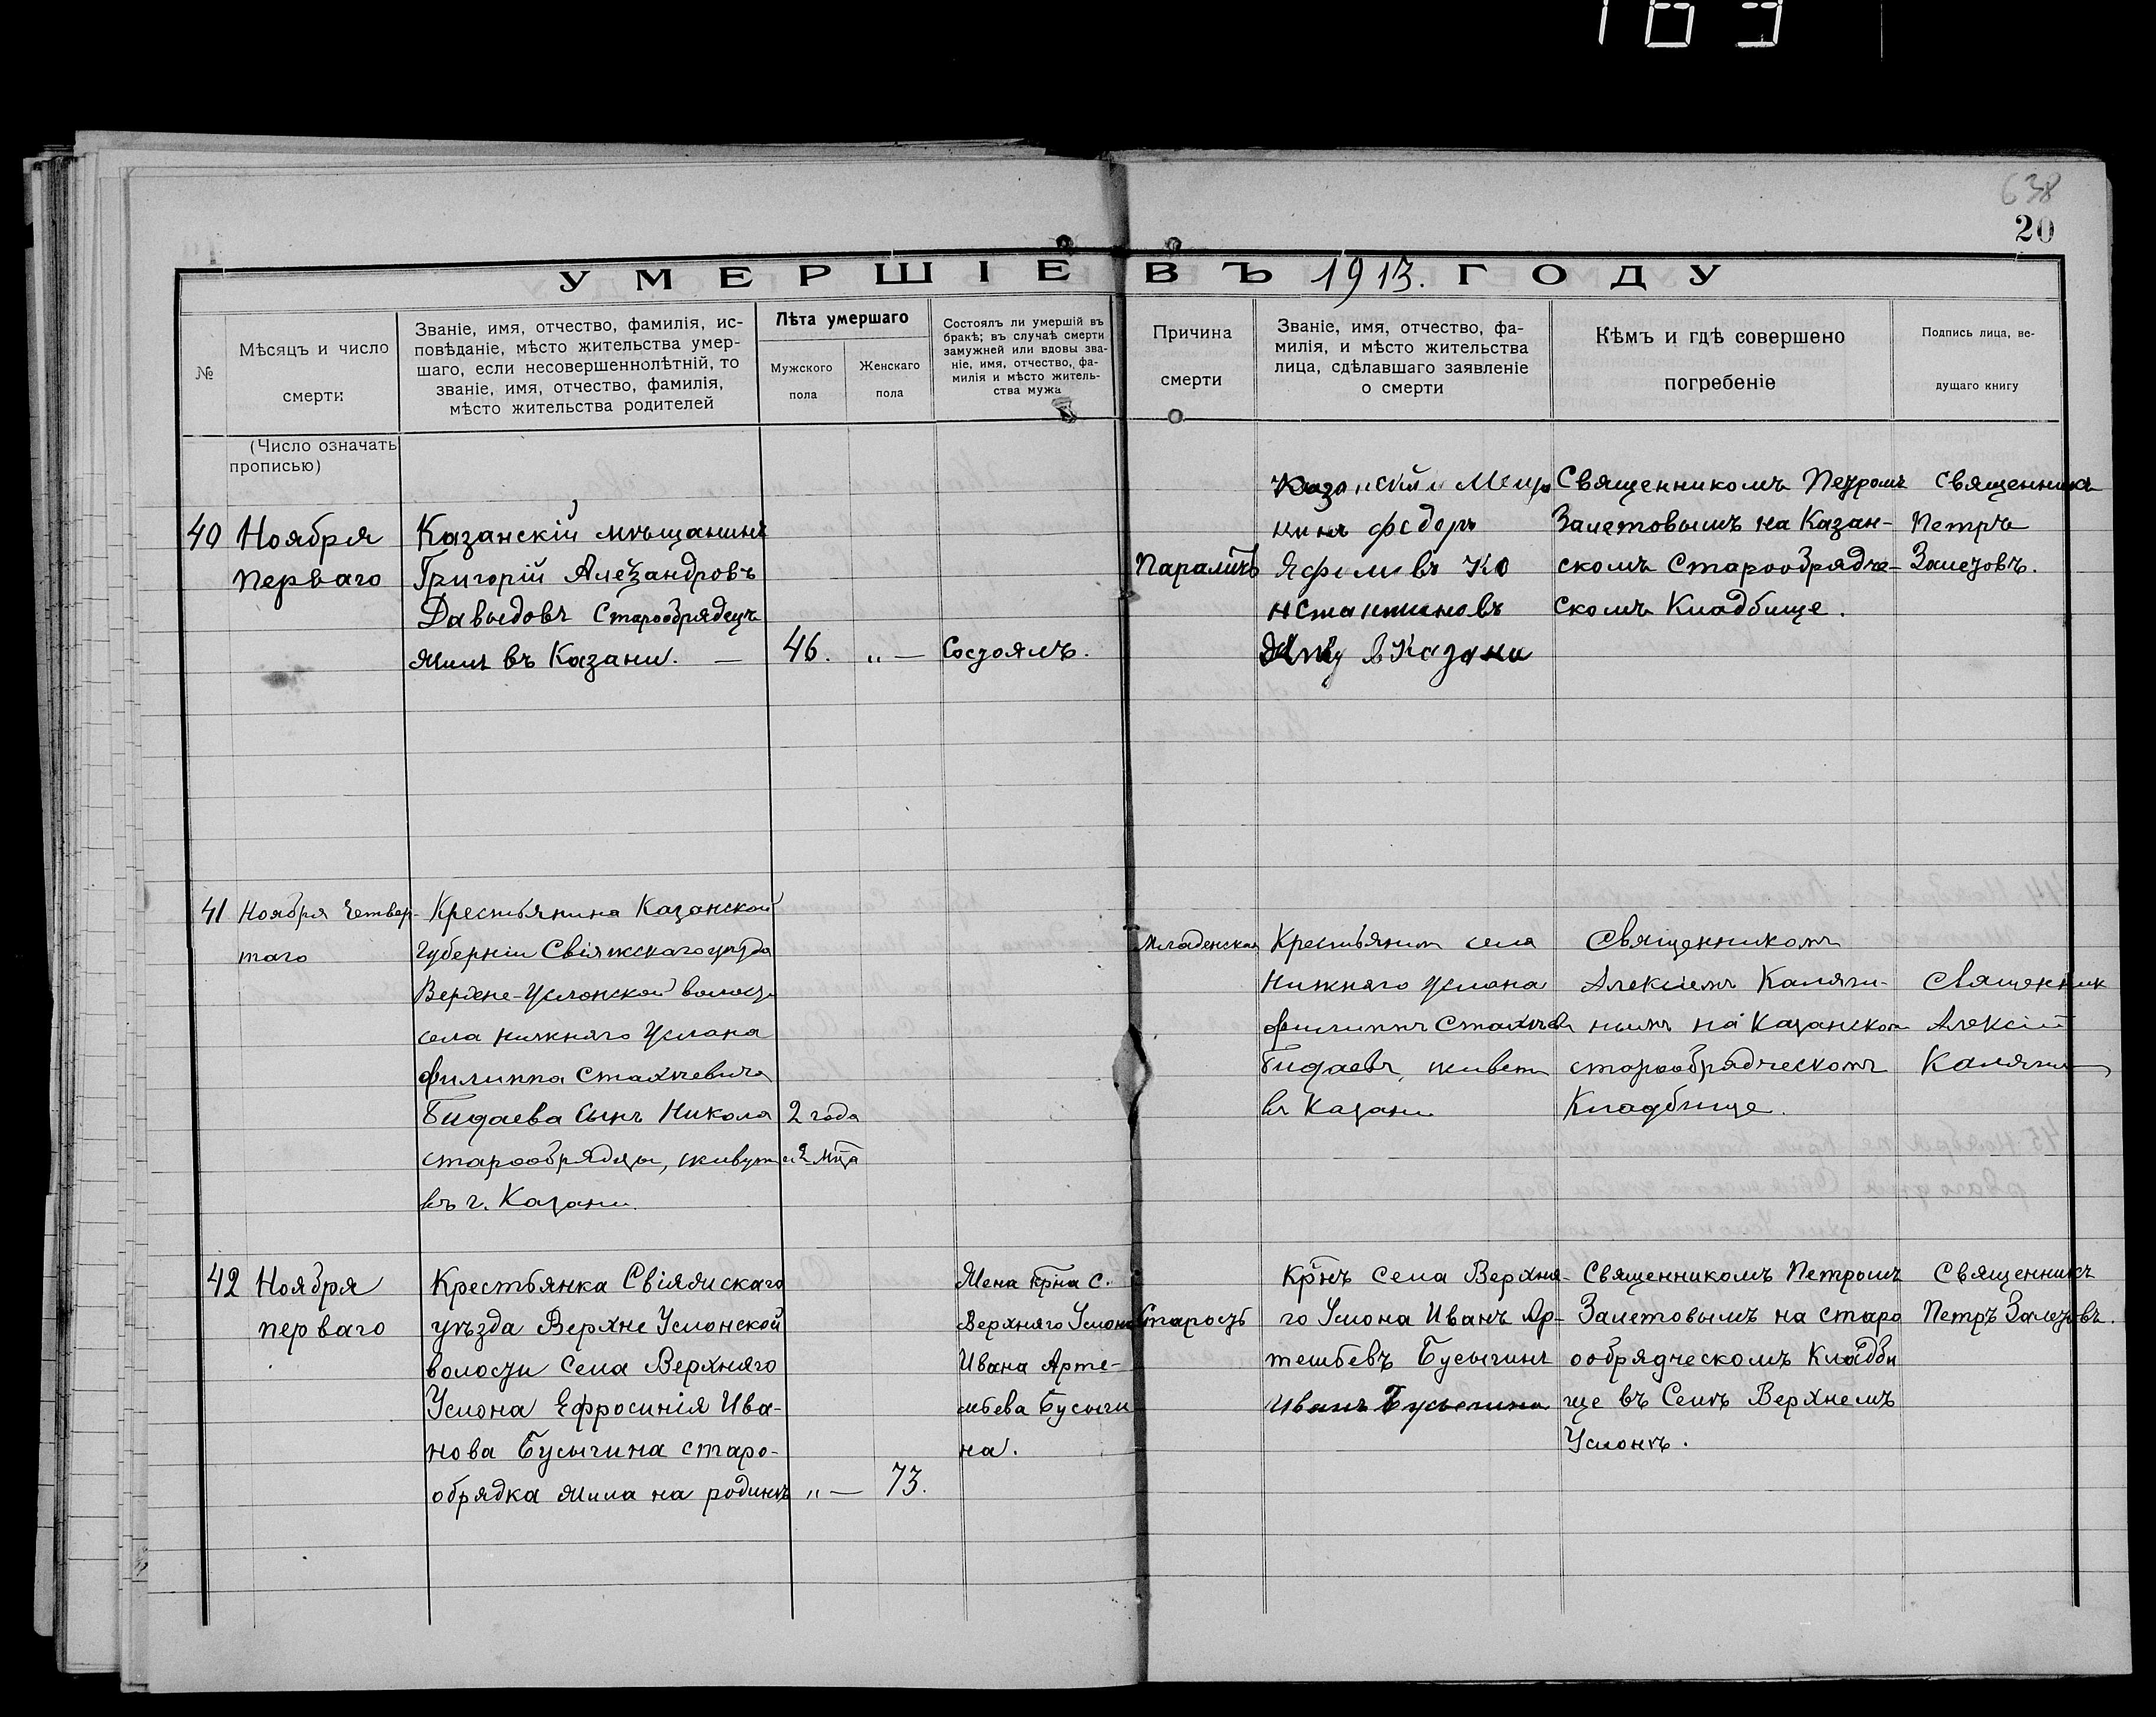 638
20
УМЕРШІЕ ВЪ 1913. ГОДУ
№
Мѣсяцъ и число
смерти
(Число означать
прописью)
Званіе, имя, отчество, фамилія, ис-
повѣданіе, мѣсто жительства умер-
шаго, если несовершеннолѣтній, то
званіе, имя, отчество, фамилія,
мѣсто жительства родителей
Лѣта умершаго
Мужского
пола
Женскаго
пола
Состоялъ ли умершій въ
бракѣ; въ случаѣ смерти
замужней или вдовы зва-
ніе, имя, отчество, фа-
милія и мѣсто житель-
ства мужа
Причина
смерти
Званіе, имя, отчество, фа-
милія, и мѣсто жительства
лица, сдѣлавшаго заявленіе
о смерти
Кѣмъ и гдѣ совершено
погребеніе
Подпись лица, ве-
дущаго книгу
40
Ноября
перваго
Казанскій мѣщанинъ
Григорій Александровъ
Давыдовъ Старообрядецъ
жилъ въ Казани. —
46.
„ —
Состоялъ.
Параличъ
Казанский Меща
нинъ федоръ
Яфимвъ Ко
нстантиновъ
Живу в Казани
Священникомъ Петромъ
Залетовымъ на Казан-
скомъ Старообрядче-
скомъ Кладбище.
Священникъ
Петръ
Залетовъ.
41
Ноября четвер-
таго
Крестьянина Казанской
губерніи Свіяжскаго уѣзда
Верхне-Услонской волости
села нижняго Услона
Филиппа Стахѣевича
Бидаева сынъ Никола
старообрядцы, живутъ
въ г. Казани.
2 года
и 2 мца
Младенская
Крестьянин села
Нижняго Услона
Филиппъ Стахѣев
Бидаевъ, живет
въ Казани
Священникомъ
Алексіемъ Каляги-
нымъ на Казанском
старообрядческомъ
Кладбище.
Священник
Алексій
Калягин
42
Ноября
перваго
Крестьянка Свіяжскаго
уѣзда Верхне Услонской
волости Села Верхняго
Услона Ефросинія Ива-
нова Бусыгина старо-
обрядка жила на родинѣ
„ —
73.
Жена крна с.
Верхняго Услона
Ивана Арте-
мьева Бусыги
на.
Старость
Крнъ Села Верхня-
го Услона Иванъ Ар-
темьевъ Бусыгинъ
Иванъ Бусыгинъ
Священникомъ Петромъ
Залетовымъ на старо
ообрядческомъ Кладби
ще въ Селѣ Верхнемъ
Услонѣ.
Священникъ
Петръ Залетовъ.